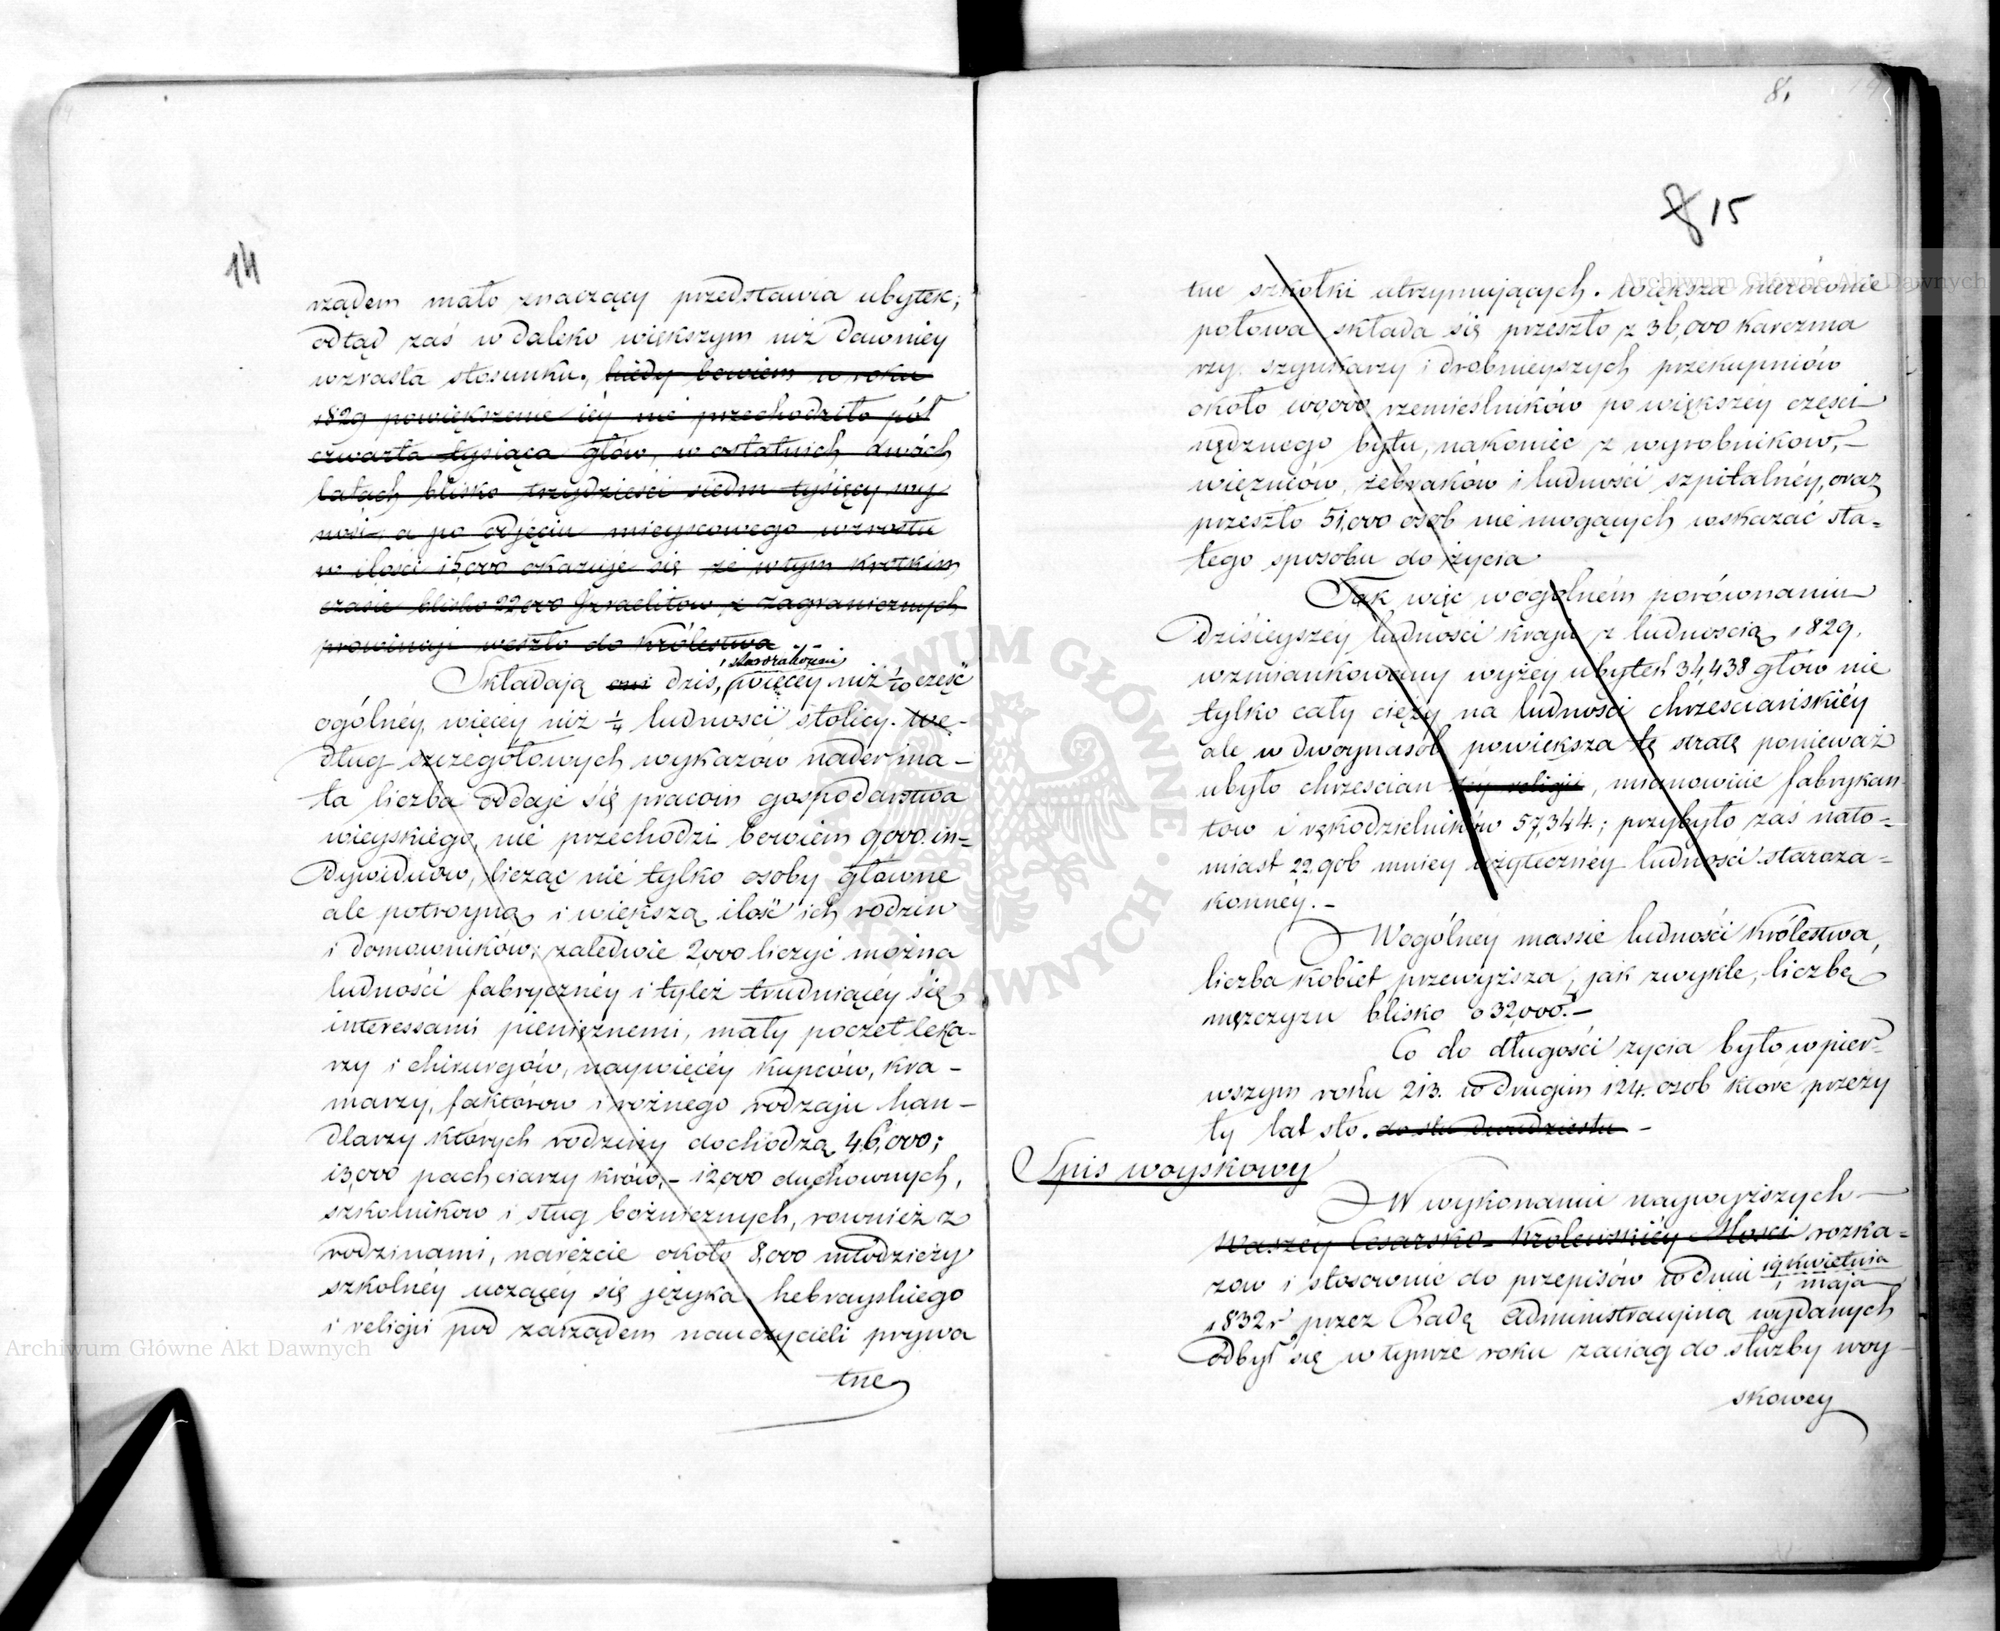 14
rządem mało znaczący przedstawia ubytek;
odtąd zaś w daleko większym niż dawniey
wzrasta stosunku, kiedy bowiem w roku
1829 powiększenie iéy nie przechodziło pół
czwarta tysiąca głów, w ostatnich dwóch
latach blisko trzydzieści siedm tysięcy wy
nosi a po odjęciu mieyscowego wzrostu
w ilości 15,000 okazuje się że w tym krótkim
czasie blisko 22000 Izraelitów z zagranicznych
prowincyi weszło do Królestwa
starozakonni
Składają oni dziś, więcéy niż 1/10 część
ogólnéy, więcéy niż 1/4 ludności stolicy. We-
dług szczegółowych wykazów nader ma-
ła liczba oddaje się pracom gospodarstwa
wieyskiego, nie przechodzi bowiem 9,000. in-
dywiduów, licząc nie tylko osoby główne
ale potroyną i większą ilość ich rodzin
i domowników; zaledwie 2,000 liczyć można
ludności fabrycznéy i tyleż trudniącéy się
interessami pieniężnemi, mały poczet leka-
rzy i chirurgów, naywięcéy kupców, kra-
marzy, faktorów i rożnego rodzaju han-
dlarzy których rodziny dochodzą 46,000;
13,000 pachciarzy krów,- 12,000 duchownych,
szkolników i sług bóżnicznych, rownież z
rodzinami, nareżcie około 8,000 młodzieży
szkolnéy uczącéy się języka hebrayskiego
i religii pod zarządem nauczycieli prywa
tne
8.
8 15
tne szkółki utrzymujących. Większa nierównie
połowa składa się przeszło z 36,000 karczma
rzy, szynkarzy i drobnieyszych przekupniów
około rzemieślników po większéy części
nędznego bytu, nakoniec z wyrobników,-
więzniów, żebraków i ludności szpitalnéy, oraz
przeszło 51,000 osob nie mogących wskazać sta-
łego sposobu do życia
Tak więc w ogolném porównaniu
dzisieyszéy ludności kraju z ludnoscią 1829,
wzmiankowany wyżéy ubytek 34,438 głów nie
tylko cały cięży na ludności chrześciańskiéy
ale w dwoynasób powiększa tę stratę ponieważ
ubyło chrześcian téy religii, mianowicie fabrykan-
tow i rękodzielników 57,344.; przybyło zaś nato-
miast 22,906 mniey użytecznéy ludności staroza-
konnéy.-
W ogólnéy massie ludności Królestwa,
liczba kobiet przewyższa, jak zwykle, liczbę
mężczyzn blisko o 32,000.-
Co do długości życia było w pier-
wszym roku 213. w drugim 124. osob które przeży
ły lat sto. do stu dwudziestu -
Spis woyskowy
W wykonaniu naywyższych
Waszéy Cesarsko-Królewskiéy Mości rozka-
zow i stosownie do przepisów w dniu 19 kwietnia
1 maja
1832 r przez Radę Administracyjną wydanych
odbył się w tymże roku zaciąg do służby woy-
skowey
Archiwum Główne Akt Dawnych
Archiwum Główne Akt Dawnych
ARCHIWUM GŁÓWNE AKT DAWNYCH